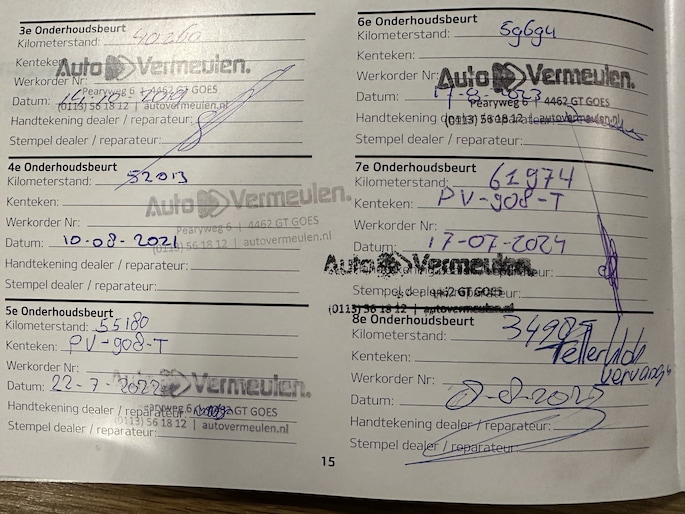 3e Onderhoudsbeurt
Kilometerstand: 40260
Kenteken:
Auto Vermeulen.
Werkorder Nr:
Pearyweg 6 | 4462 GT GOES
Datum:
(0113) 56 18 12 | autovermeulen.nl
Handtekening dealer / reparateur:
Stempel dealer / reparateur:
4e Onderhoudsbeurt
Kilometerstand: 52013
Kenteken:
Auto Vermeulen.
Werkorder Nr:
Pearyweg 6 | 4462 GT GOES
Datum: 10-08-2021
(0113) 56 18 12 | autovermeulen.nl
Handtekening dealer / reparateur:
Stempel dealer / reparateur:
5e Onderhoudsbeurt
Kilometerstand: 55180
Kenteken: PV-908-T
Werkorder Nr:
Auto Vermeulen.
Datum: 22-7-2022
Pearyweg 6 | 4462 GT GOES
Handtekening dealer / reparateur:
(0113) 56 18 12 | autovermeulen.nl
Stempel dealer / reparateur:
6e Onderhoudsbeurt
Kilometerstand: 59694
Kenteken:
Werkorder Nr:
Auto Vermeulen.
Datum:
Pearyweg 6 | 4462 GT GOES
Handtekening dealer / reparateur:
(0113) 56 18 12 | autovermeulen.nl
Stempel dealer / reparateur:
7e Onderhoudsbeurt
Kilometerstand: 61974
Kenteken: PV-908-T
Werkorder Nr:
Datum: 17-07-2024
Auto Vermeulen.
Handtekening dealer / reparateur:
4462 GT GOES
Stempel dealer / reparateur:
(0113) 56 18 12 | autovermeulen.nl
8e Onderhoudsbeurt
Kilometerstand: 34905
Tellerklok
Kenteken:
vervangen
Werkorder Nr:
Datum:
Handtekening dealer / reparateur:
Stempel dealer / reparateur:
15